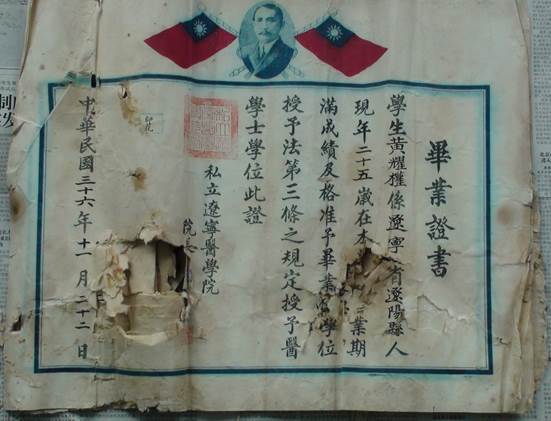 畢業證書
學生黃耀獾係遼寧省遼陽縣人
現年二十五歲在本業期
滿成績及格准予畢業學位
授予法第三條之規定授予醫
學士學位此證
私立遼寧醫學院
院長
中華民國三十六年十一月二十二日
印花